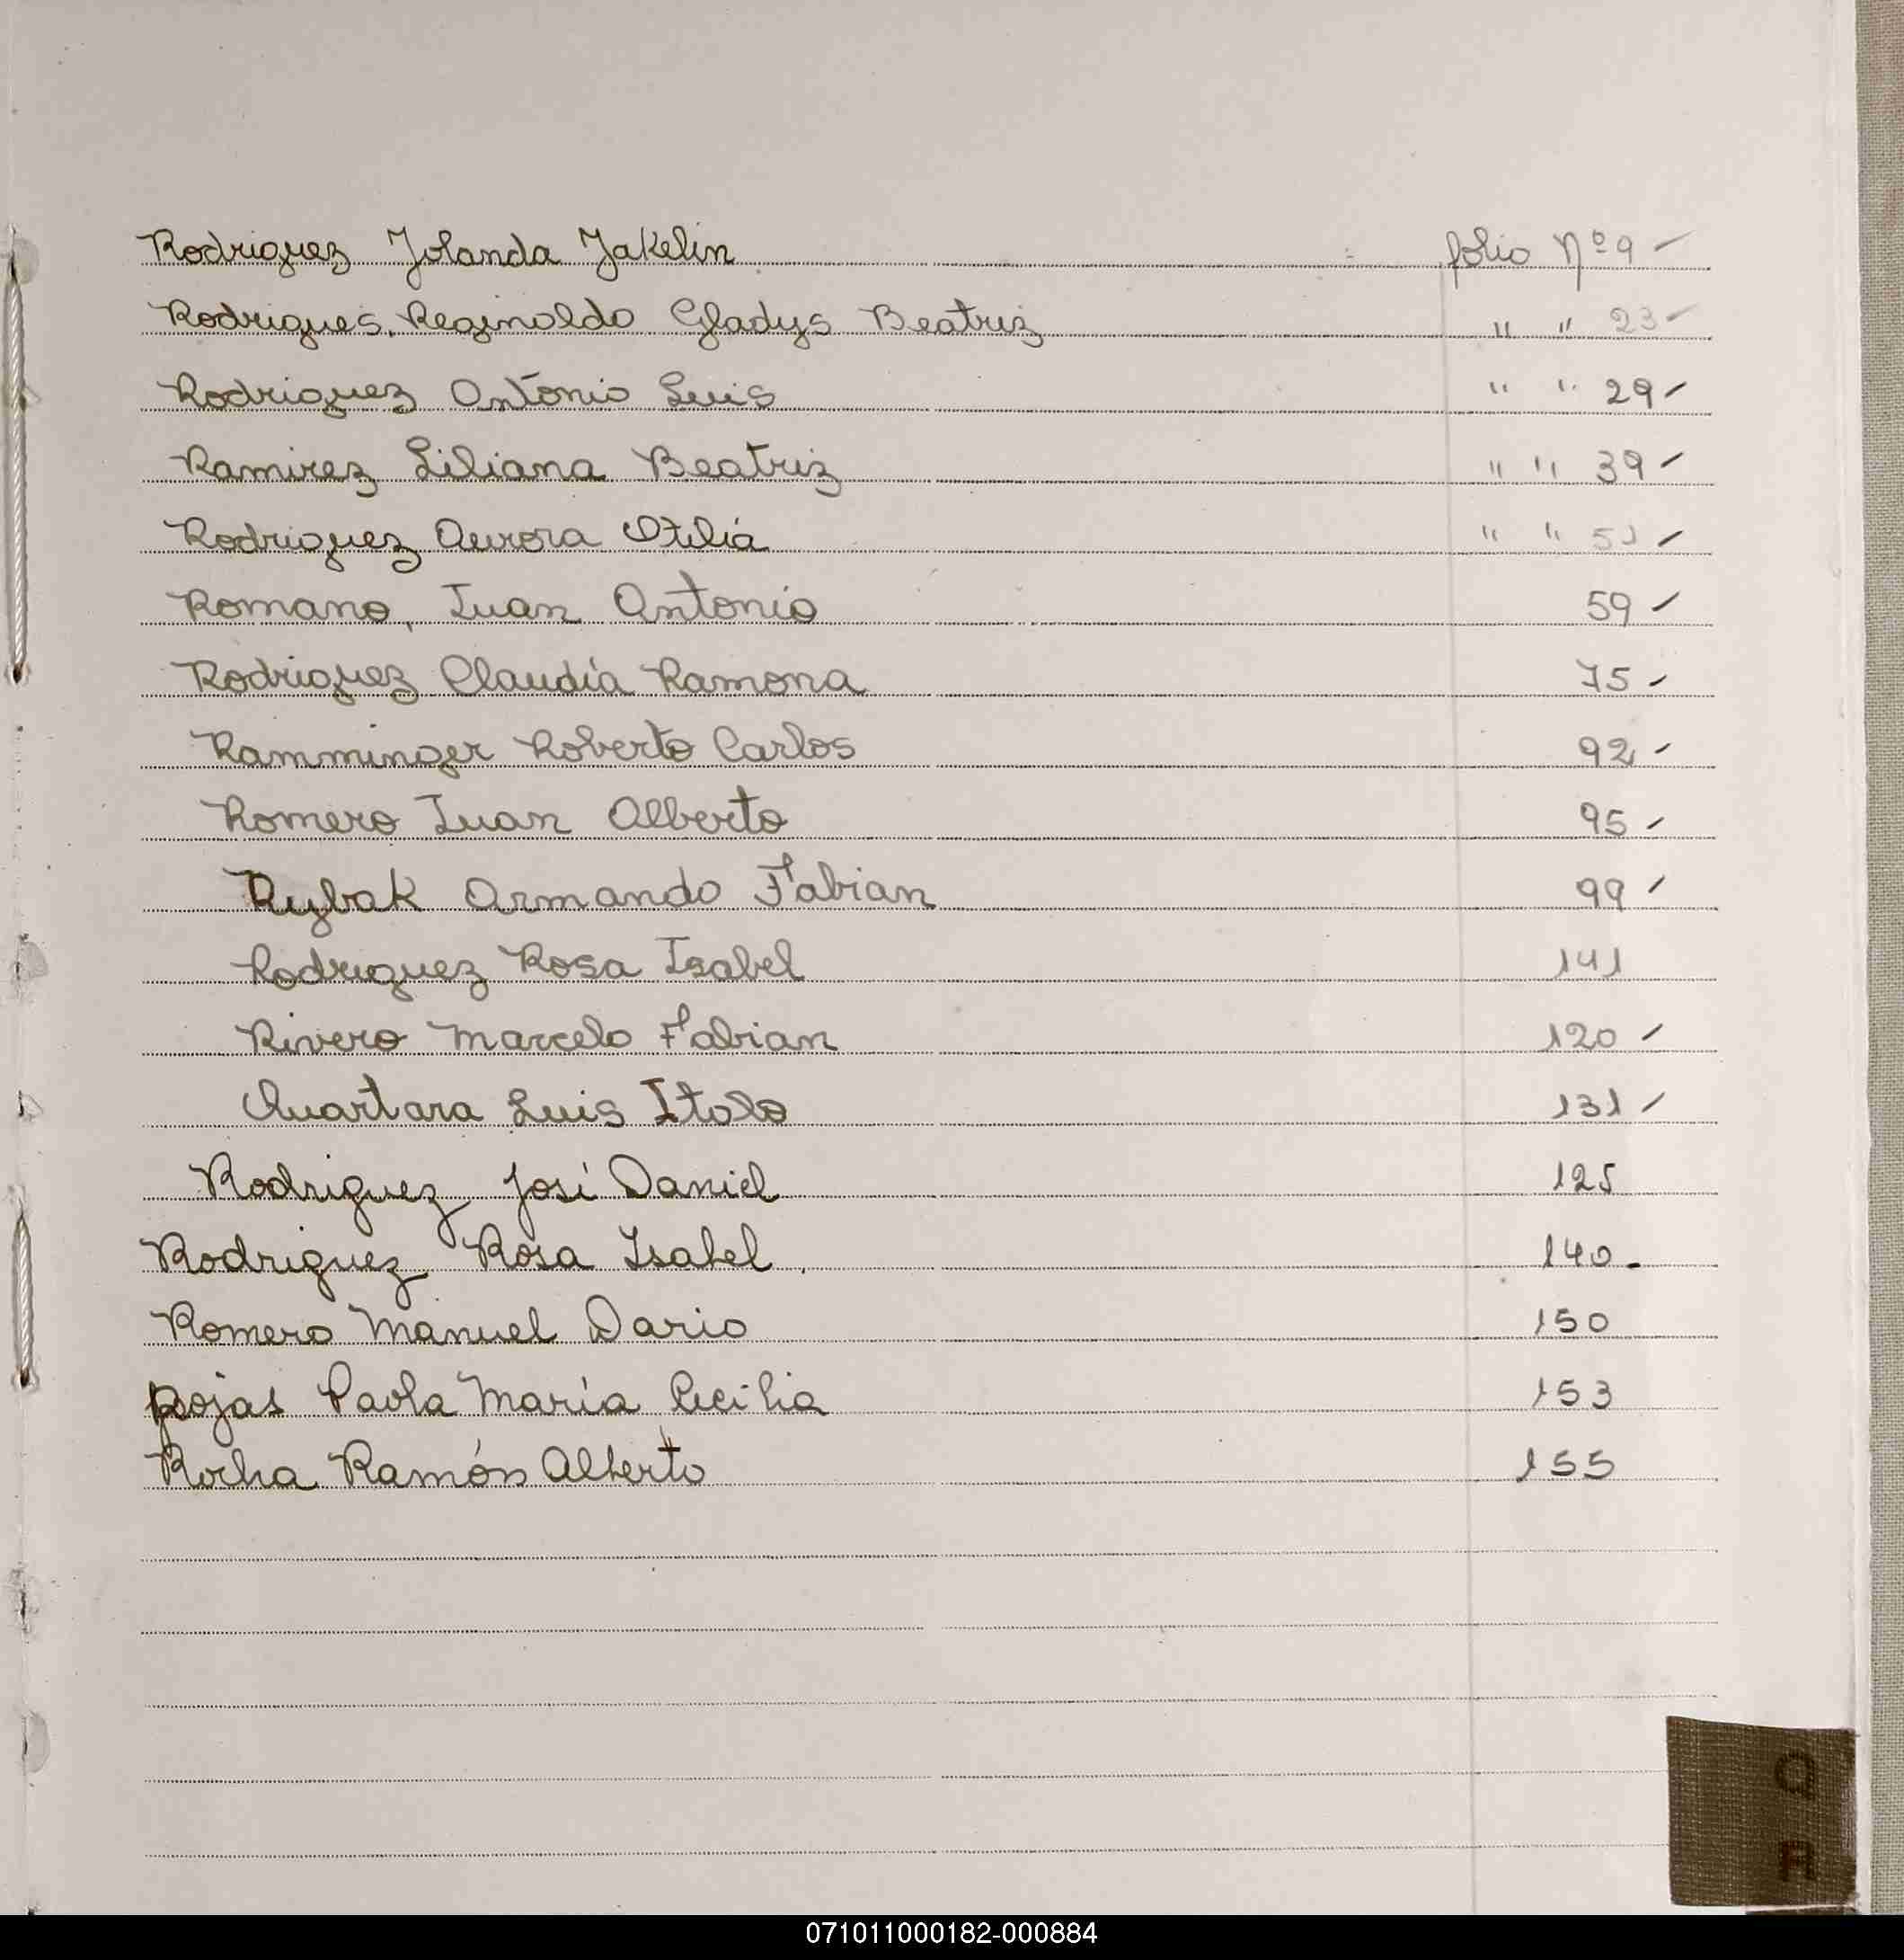 Rodriguez Yolanda Yakelin folio Nº 9
Rodrigues, Reginoldo Gladys Beatriz " " 23
Rodriguez Antonio Luis " " 29
Ramirez Liliana Beatriz " " 39
Rodriguez Aurora Otilia " " 51
Romano, Juan Antonio 59
Rodriguez Claudia Ramona 75
Ramminger Roberto Carlos 92
Romero Juan Alberto 95
Rybak Armando Fabian 99
Rodriguez Rosa Isabel 141
Rivero Marcelo Fabian 120
Quartara Luis Italo 131
Rodriguez José Daniel 125
Rodriguez Rosa Isabel. 140
Romero Manuel Dario 150
Rojas Paola María Cecilia 153
Rocha Ramón Alberto 155
Q
R
071011000182-000884